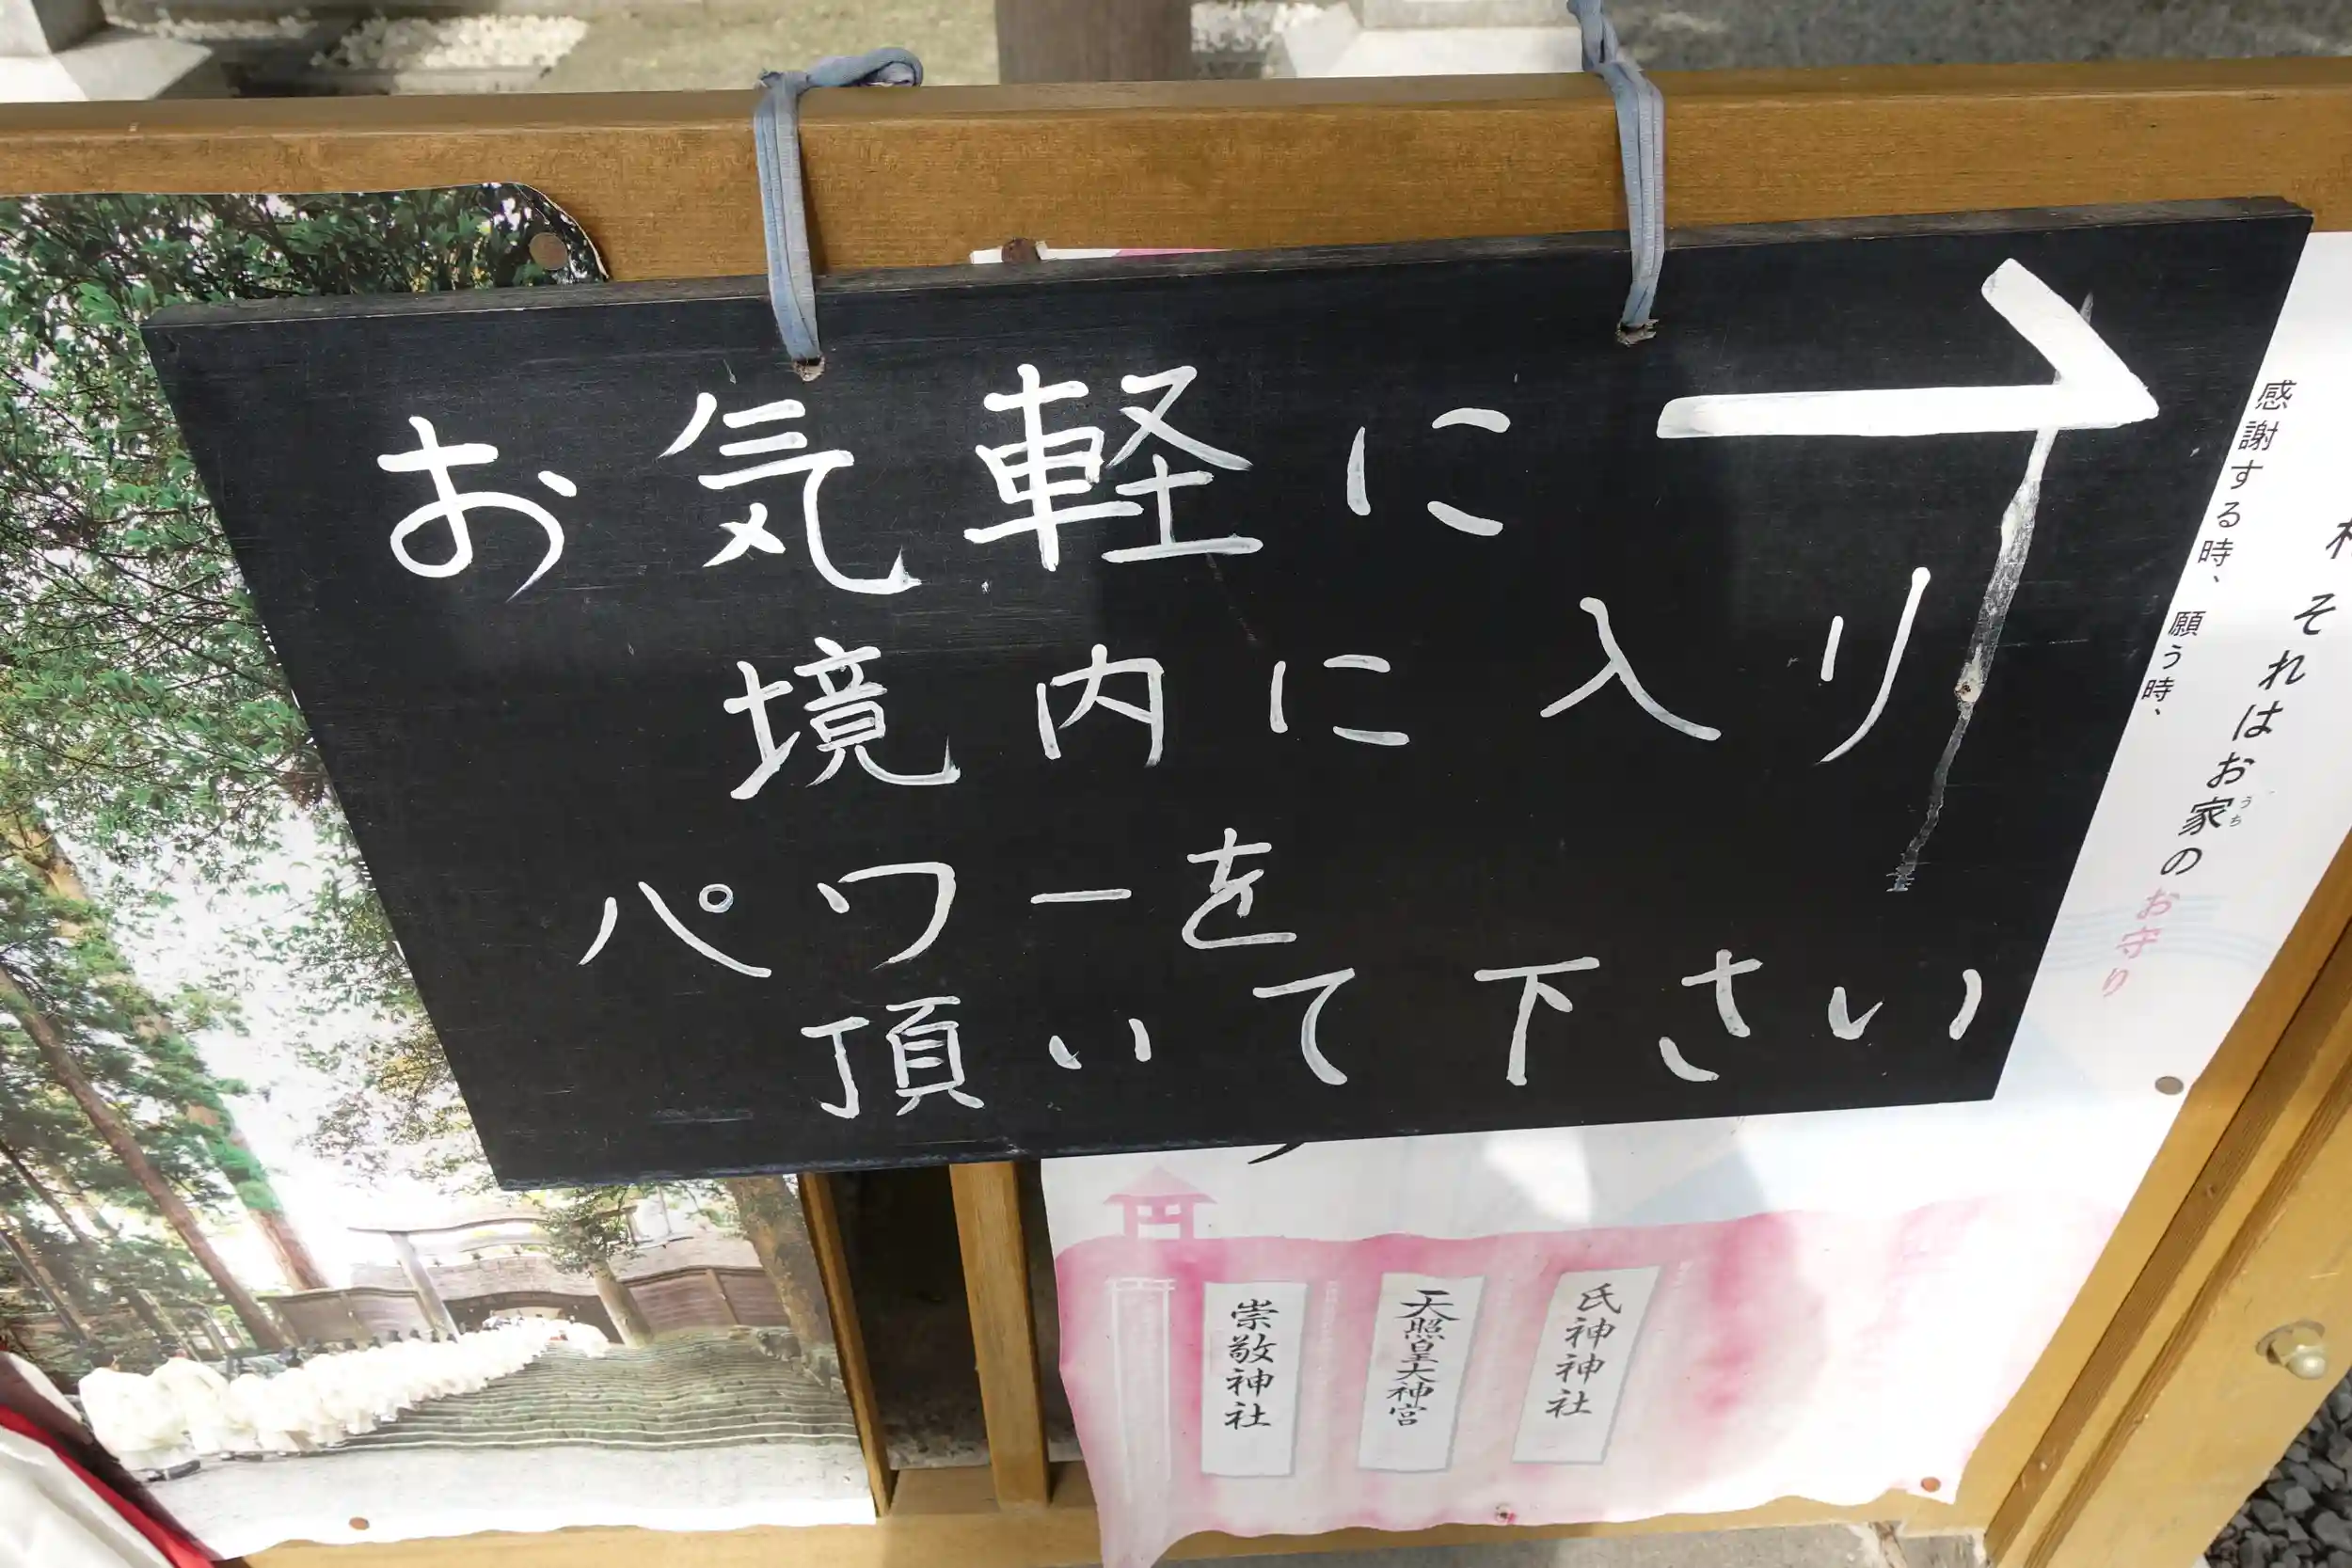 お気軽に
境内に入り
パワーを
頂いて下さい
それはお家の
うち
お守り
感謝する時、願う時、
氏神神社
天照皇大神宮
崇敬神社